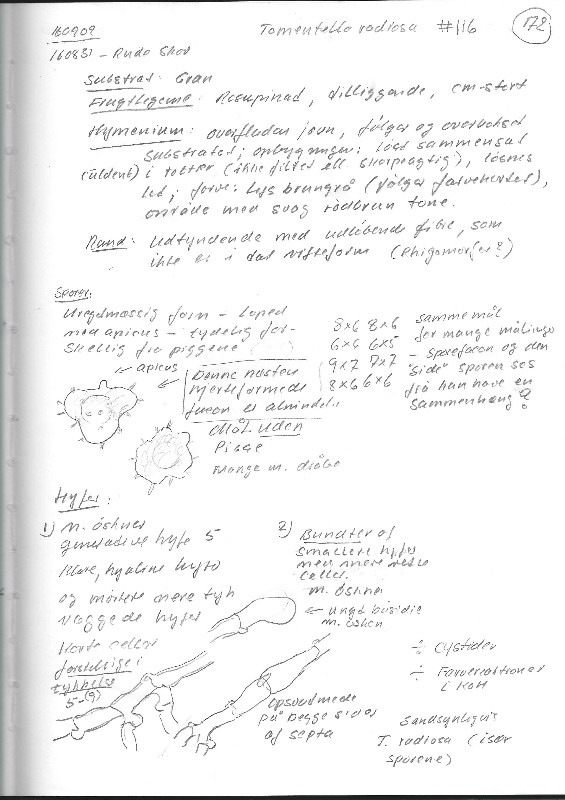 160909 Tomentella radiosa #116 172
160831 - Rude Skov
Substrat: Gran
Frugtlegeme: Resupinat, tilliggende, cm-stort
Hymenium: overfladen jævn, følger og overvokset
substratet; opbygningen: løst sammensat
(uldent) i totter (ikke filtet ell skorpeagtig), løsnes
let; farve: lys brungrå (følger farvekortet),
område med svag rødbrun tone.
Rand: Udtyndende med udløbende fibre, som
ikke er i dat vifteform (Rhizomorfer?)
Sporer:
Uregelmæssig form - loped
med apicus - tydelig for-
skellig fra piggene
← apicus
Denne næsten
hjerteformede
facon er almindelig
Mål uden
Pigge
Mange m. dråbe
8x6 8x6
6x6 6x5
9x7 7x7
8x6 6x6
samme mål
for mange målinger
- sporefacon og den
"side" sporen ses
fra kan have en
sammenhæng?
Hyfer:
1) m. øskner
generative hyfe 5
klare, hyaline hyfer
og mørkere mere tyk
væggede hyfer
Korte celler
forskellige i
tykkelse
5-(9)
2) Bundter af
smallere hyfer
med mere rette
celler.
m. øskner
← ungt basidie
m. øsken
opsvulmede
på begge sider
af septa
÷ Cystider
÷ Farvereaktioner
i KOH
Sandsynligvis
T. radiosa (især
sporene)